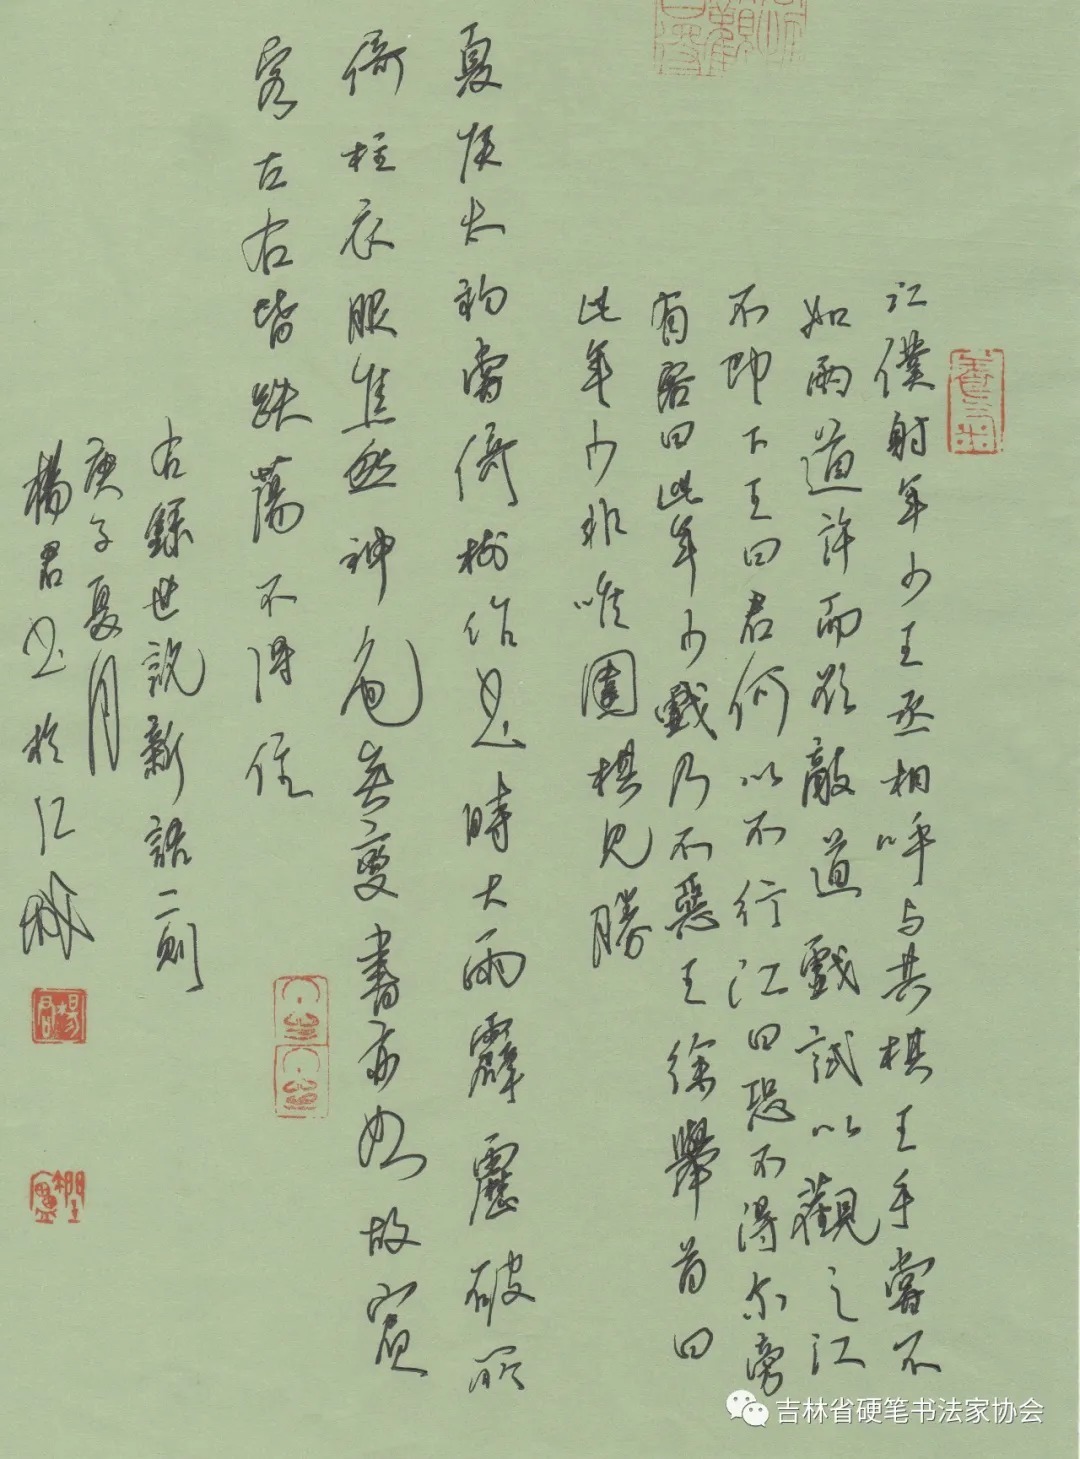 江僕射年少王丞相呼与共棋王手嘗不
如兩道許而欲敵道戲試以觀之江
不即下王曰君何以不行江曰恐不得尔旁
有客曰此年少戲乃不惡王徐舉首曰
此年少非唯圍棋見勝
夏侯太初嘗倚柱作書時大雨霹靂破所
倚柱衣服焦然神色無變書亦如故賓
客左右皆跌蕩不得住
右録世説新語二則
庚子夏月
楊君書於江城
楊君
吉林省硬笔书法家协会